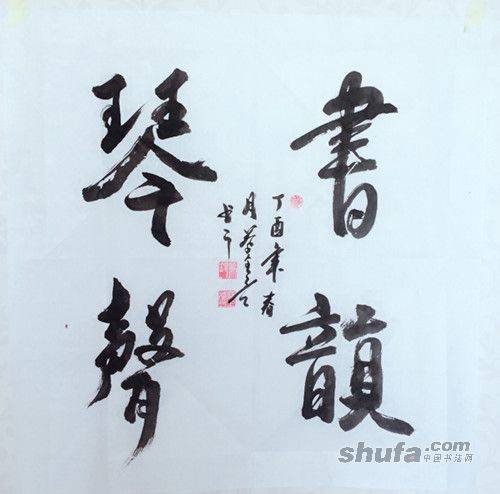 書韻
琴聲
丁酉年春
月
shufa.com
中国书法网